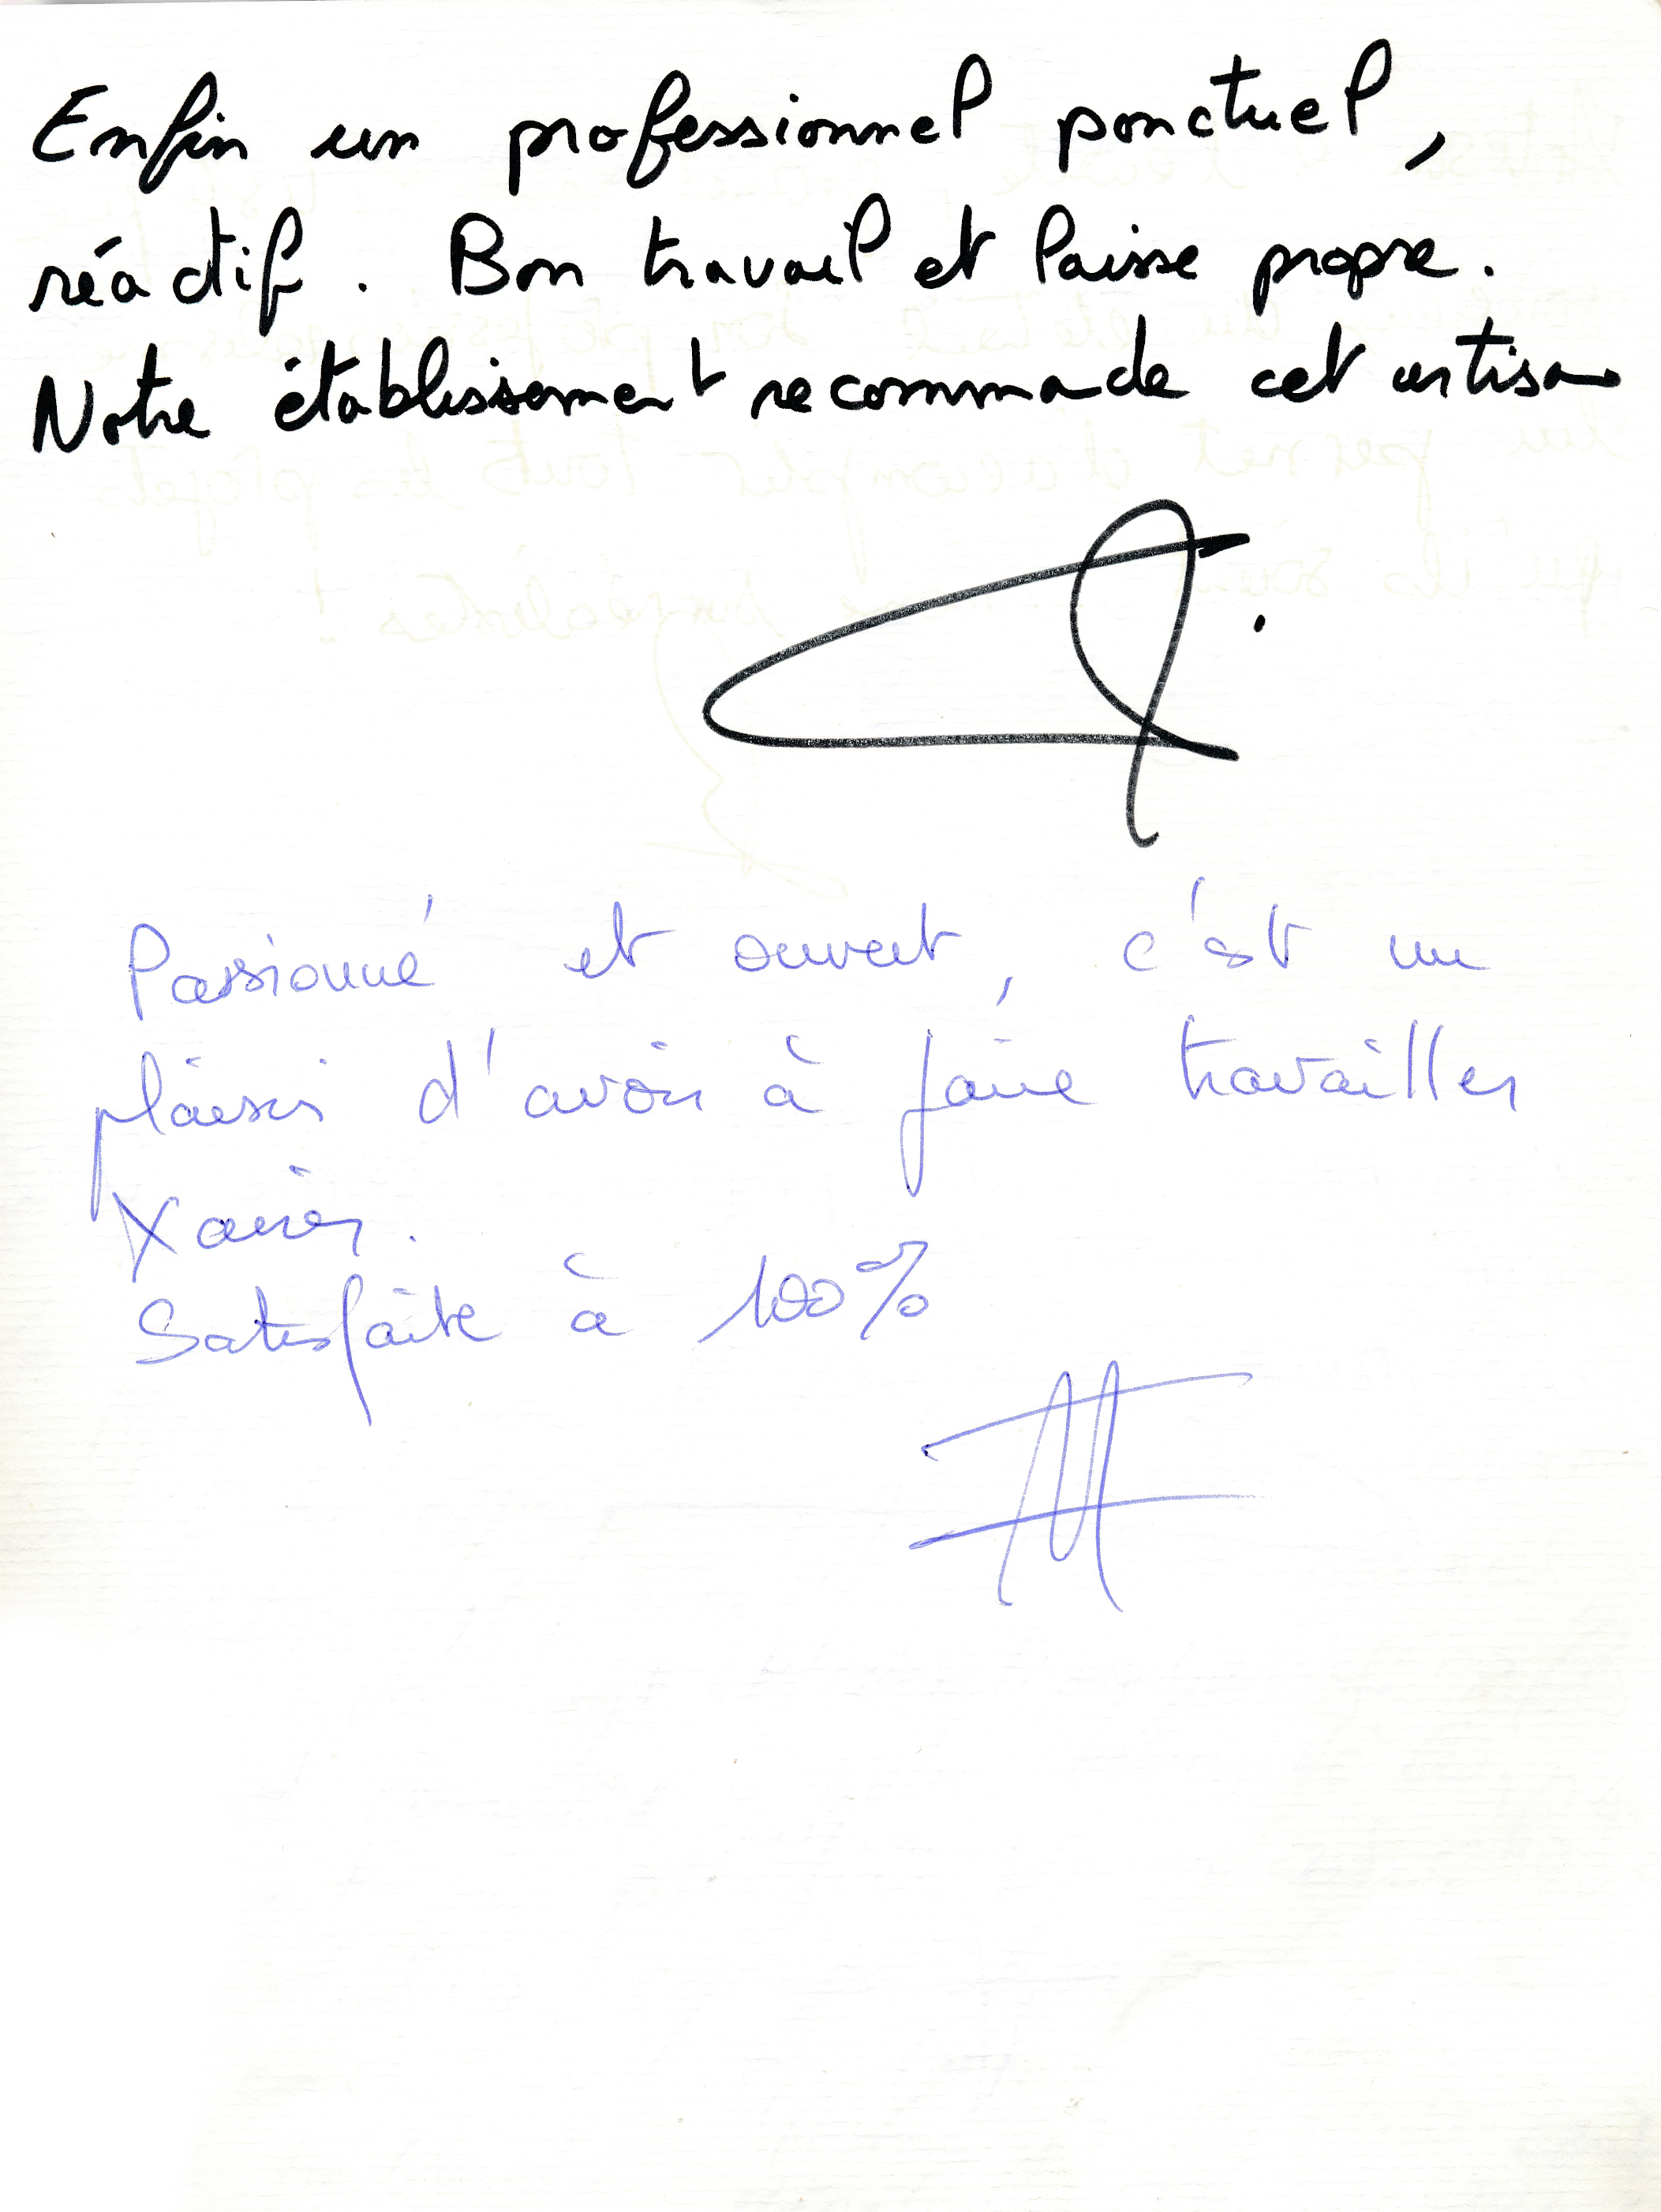 Enfin un professionnel ponctuel,
réactif. Bon travail et laisse propre.
Notre établissement recommade cet artisan
Passionné et ouvert, c'est un
plaisir d'avoir à faire travailler
Xavier.
Satisfaite à 100%